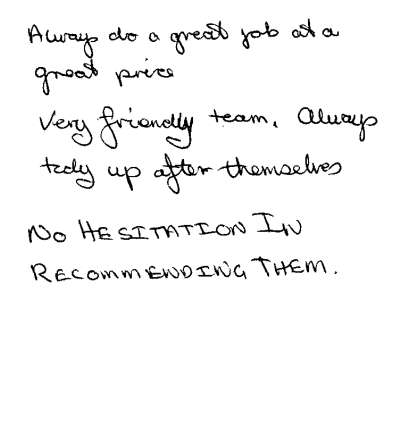 Always do a great job at a
great price
Very friendly team. Always
tidy up after themselves
NO HESITATION IN
RECOMMENDING THEM.